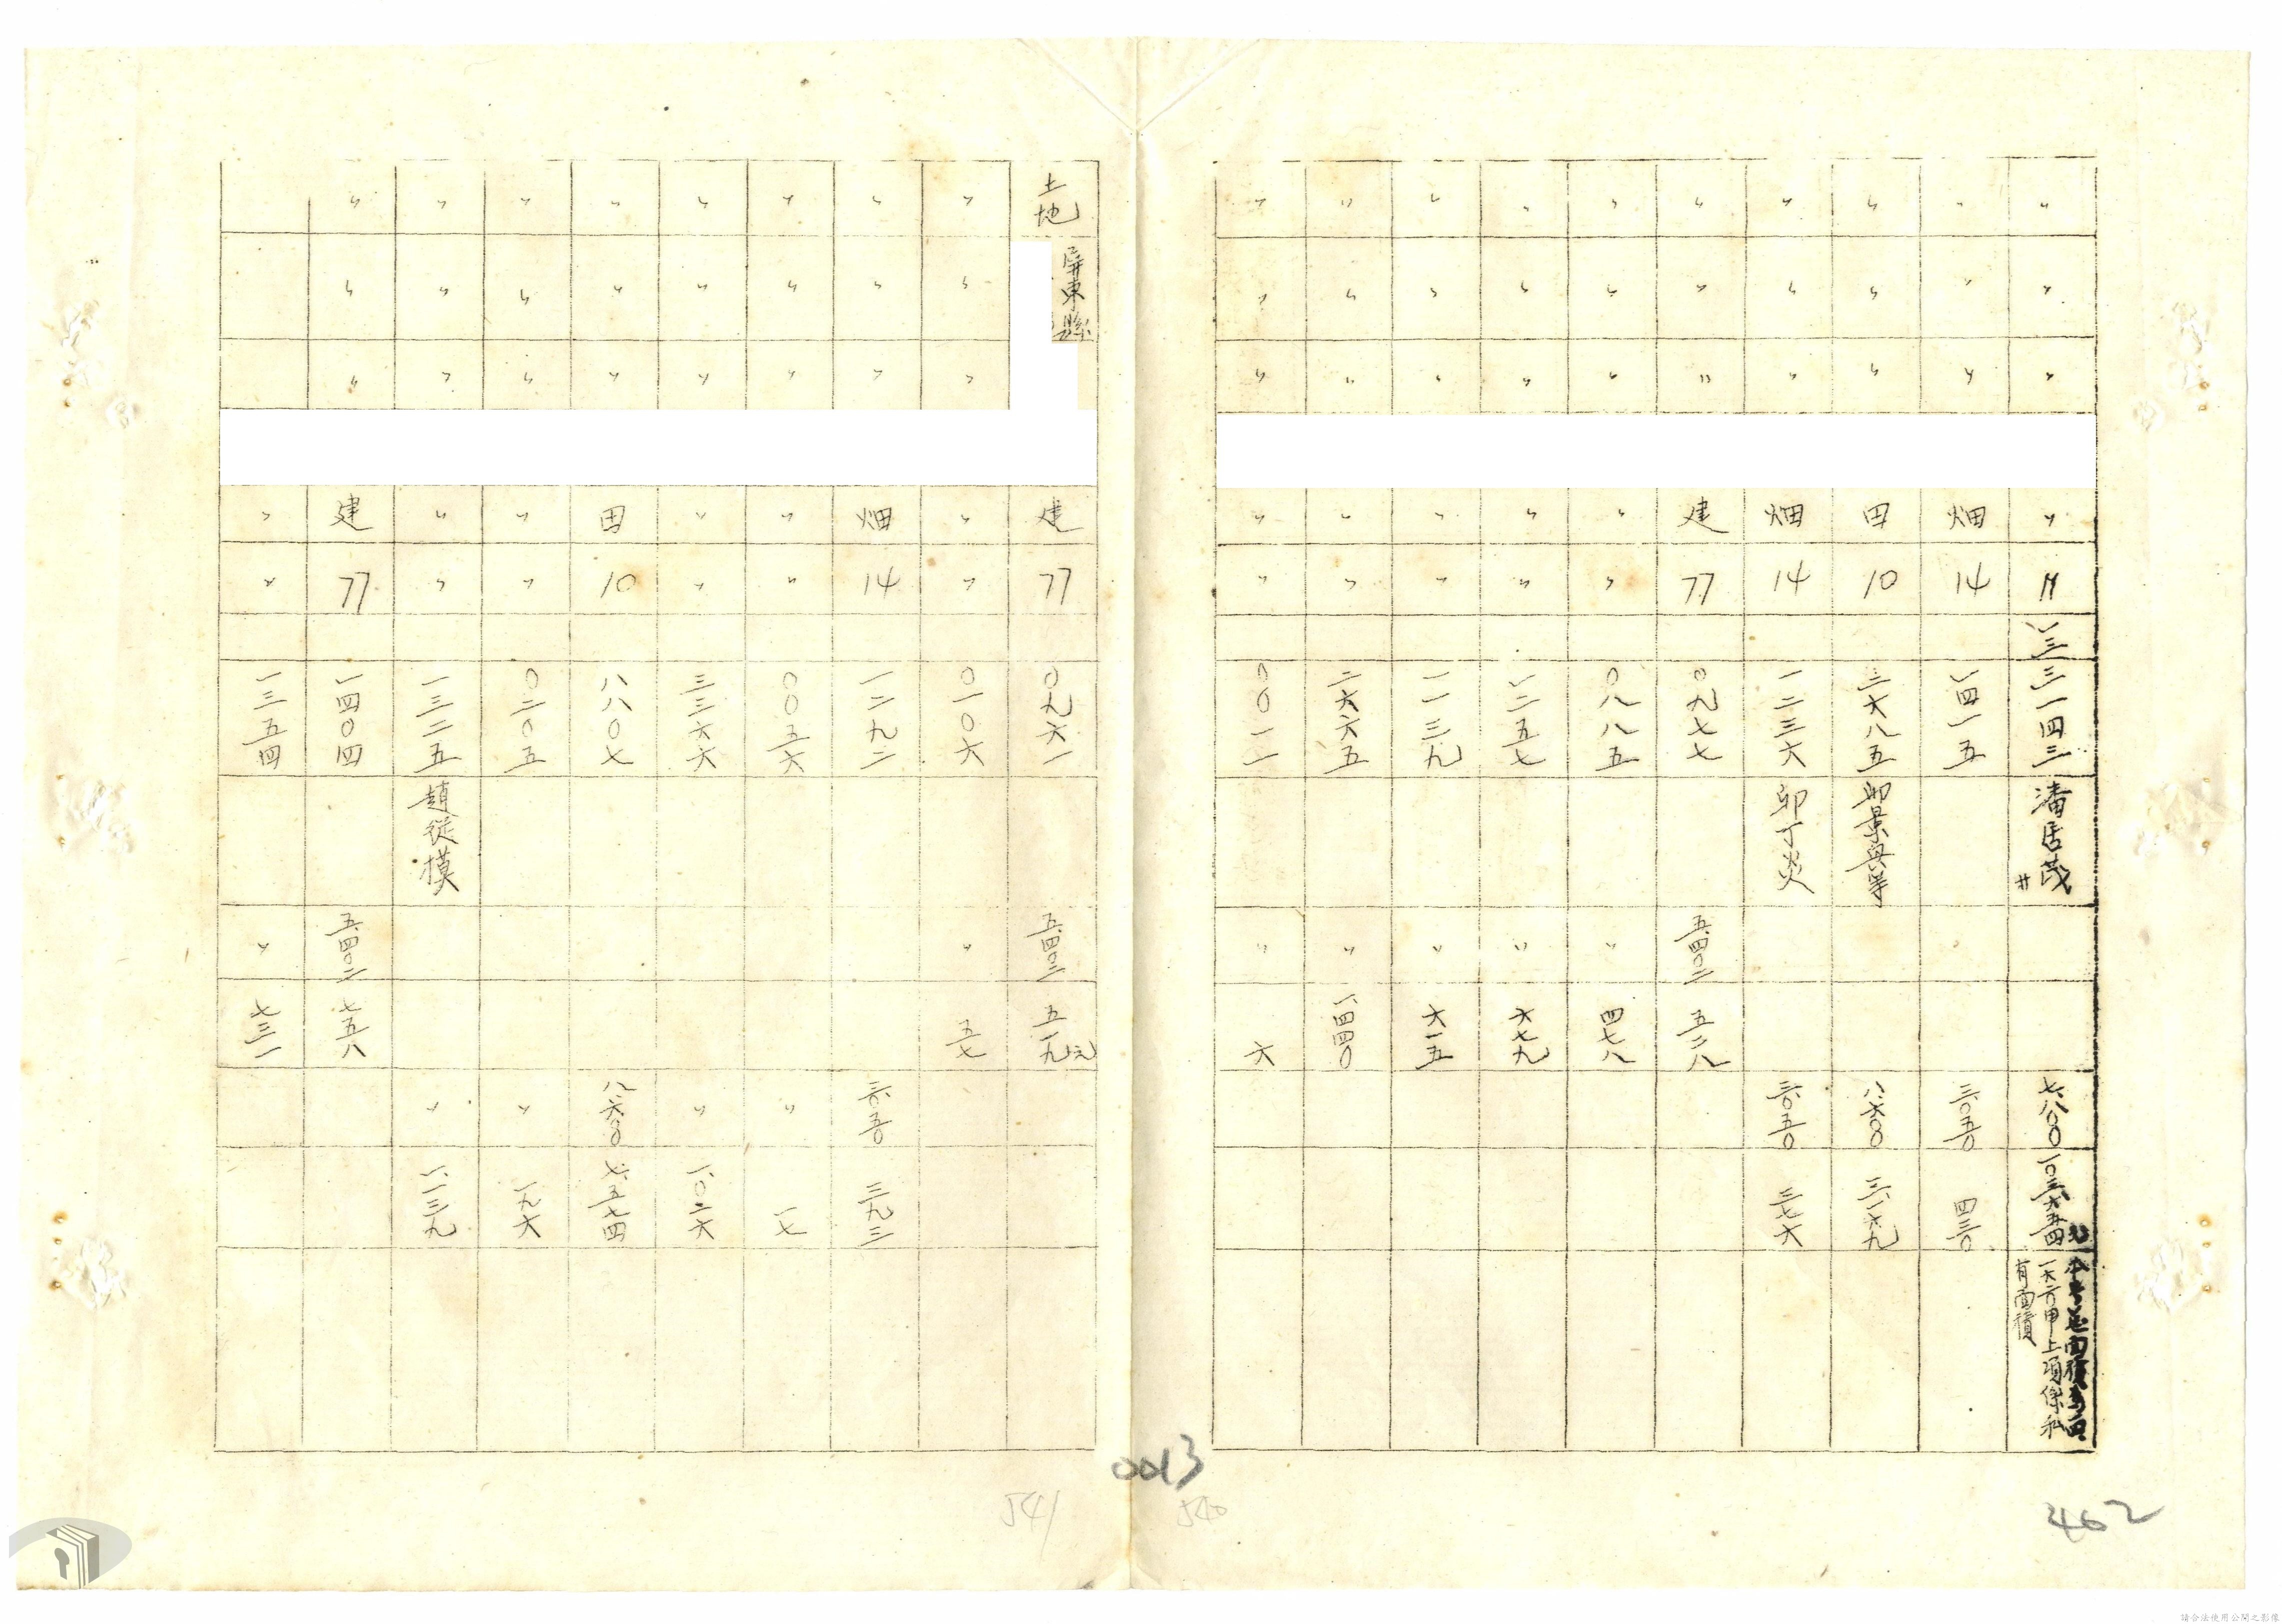 〃 〃 〃 〃 〃 三一四三 潘居茂 七、八〇〇 一〇三、六五四元 一六六甲上項係私有面積
〃 〃 〃 畑 14 一四一五 三、〇五〇 四三〇
〃 〃 〃 田 10 三六八五 卯景與等 八、六〇〇 三、一六九
〃 〃 〃 畑 14 一二三六 卯丁炎 三、〇五〇 三七六
〃 〃 〃 建 77 〇九七七 五、四〇二 五二八
〃 〃 〃 〃 〃 〇八八五 〃 四七八
〃 〃 〃 〃 〃 一二五七 〃 六七九
〃 〃 〃 〃 〃 一一三九 〃 六一五
〃 〃 〃 〃 〃 二六六五 〃 一、四四〇
〃 〃 〃 〃 〃 〇〇一一 〃 六
土地 屏東縣 建 77 〇九六一 五、四〇二 五一九元
〃 〃 〃 〃 〃 〇一〇六 〃 五七
〃 〃 〃 畑 14 一二九二 三、〇五〇 三九三
〃 〃 〃 〃 〃 〇〇五六 〃 一七
〃 〃 〃 〃 〃 三三六六 〃 一、〇二六
〃 〃 〃 田 10 八八〇七 八、六〇〇 七、五七四
〃 〃 〃 〃 〃 〇二〇五 〃 一九六
〃 〃 〃 〃 〃 一三二五 趙從模 〃 一、一三九
〃 〃 〃 建 77 一四〇四 五、四〇二 七五八
〃 〃 一三五四 〃 七三一
0013
541
540
462
請合法使用公開之影像